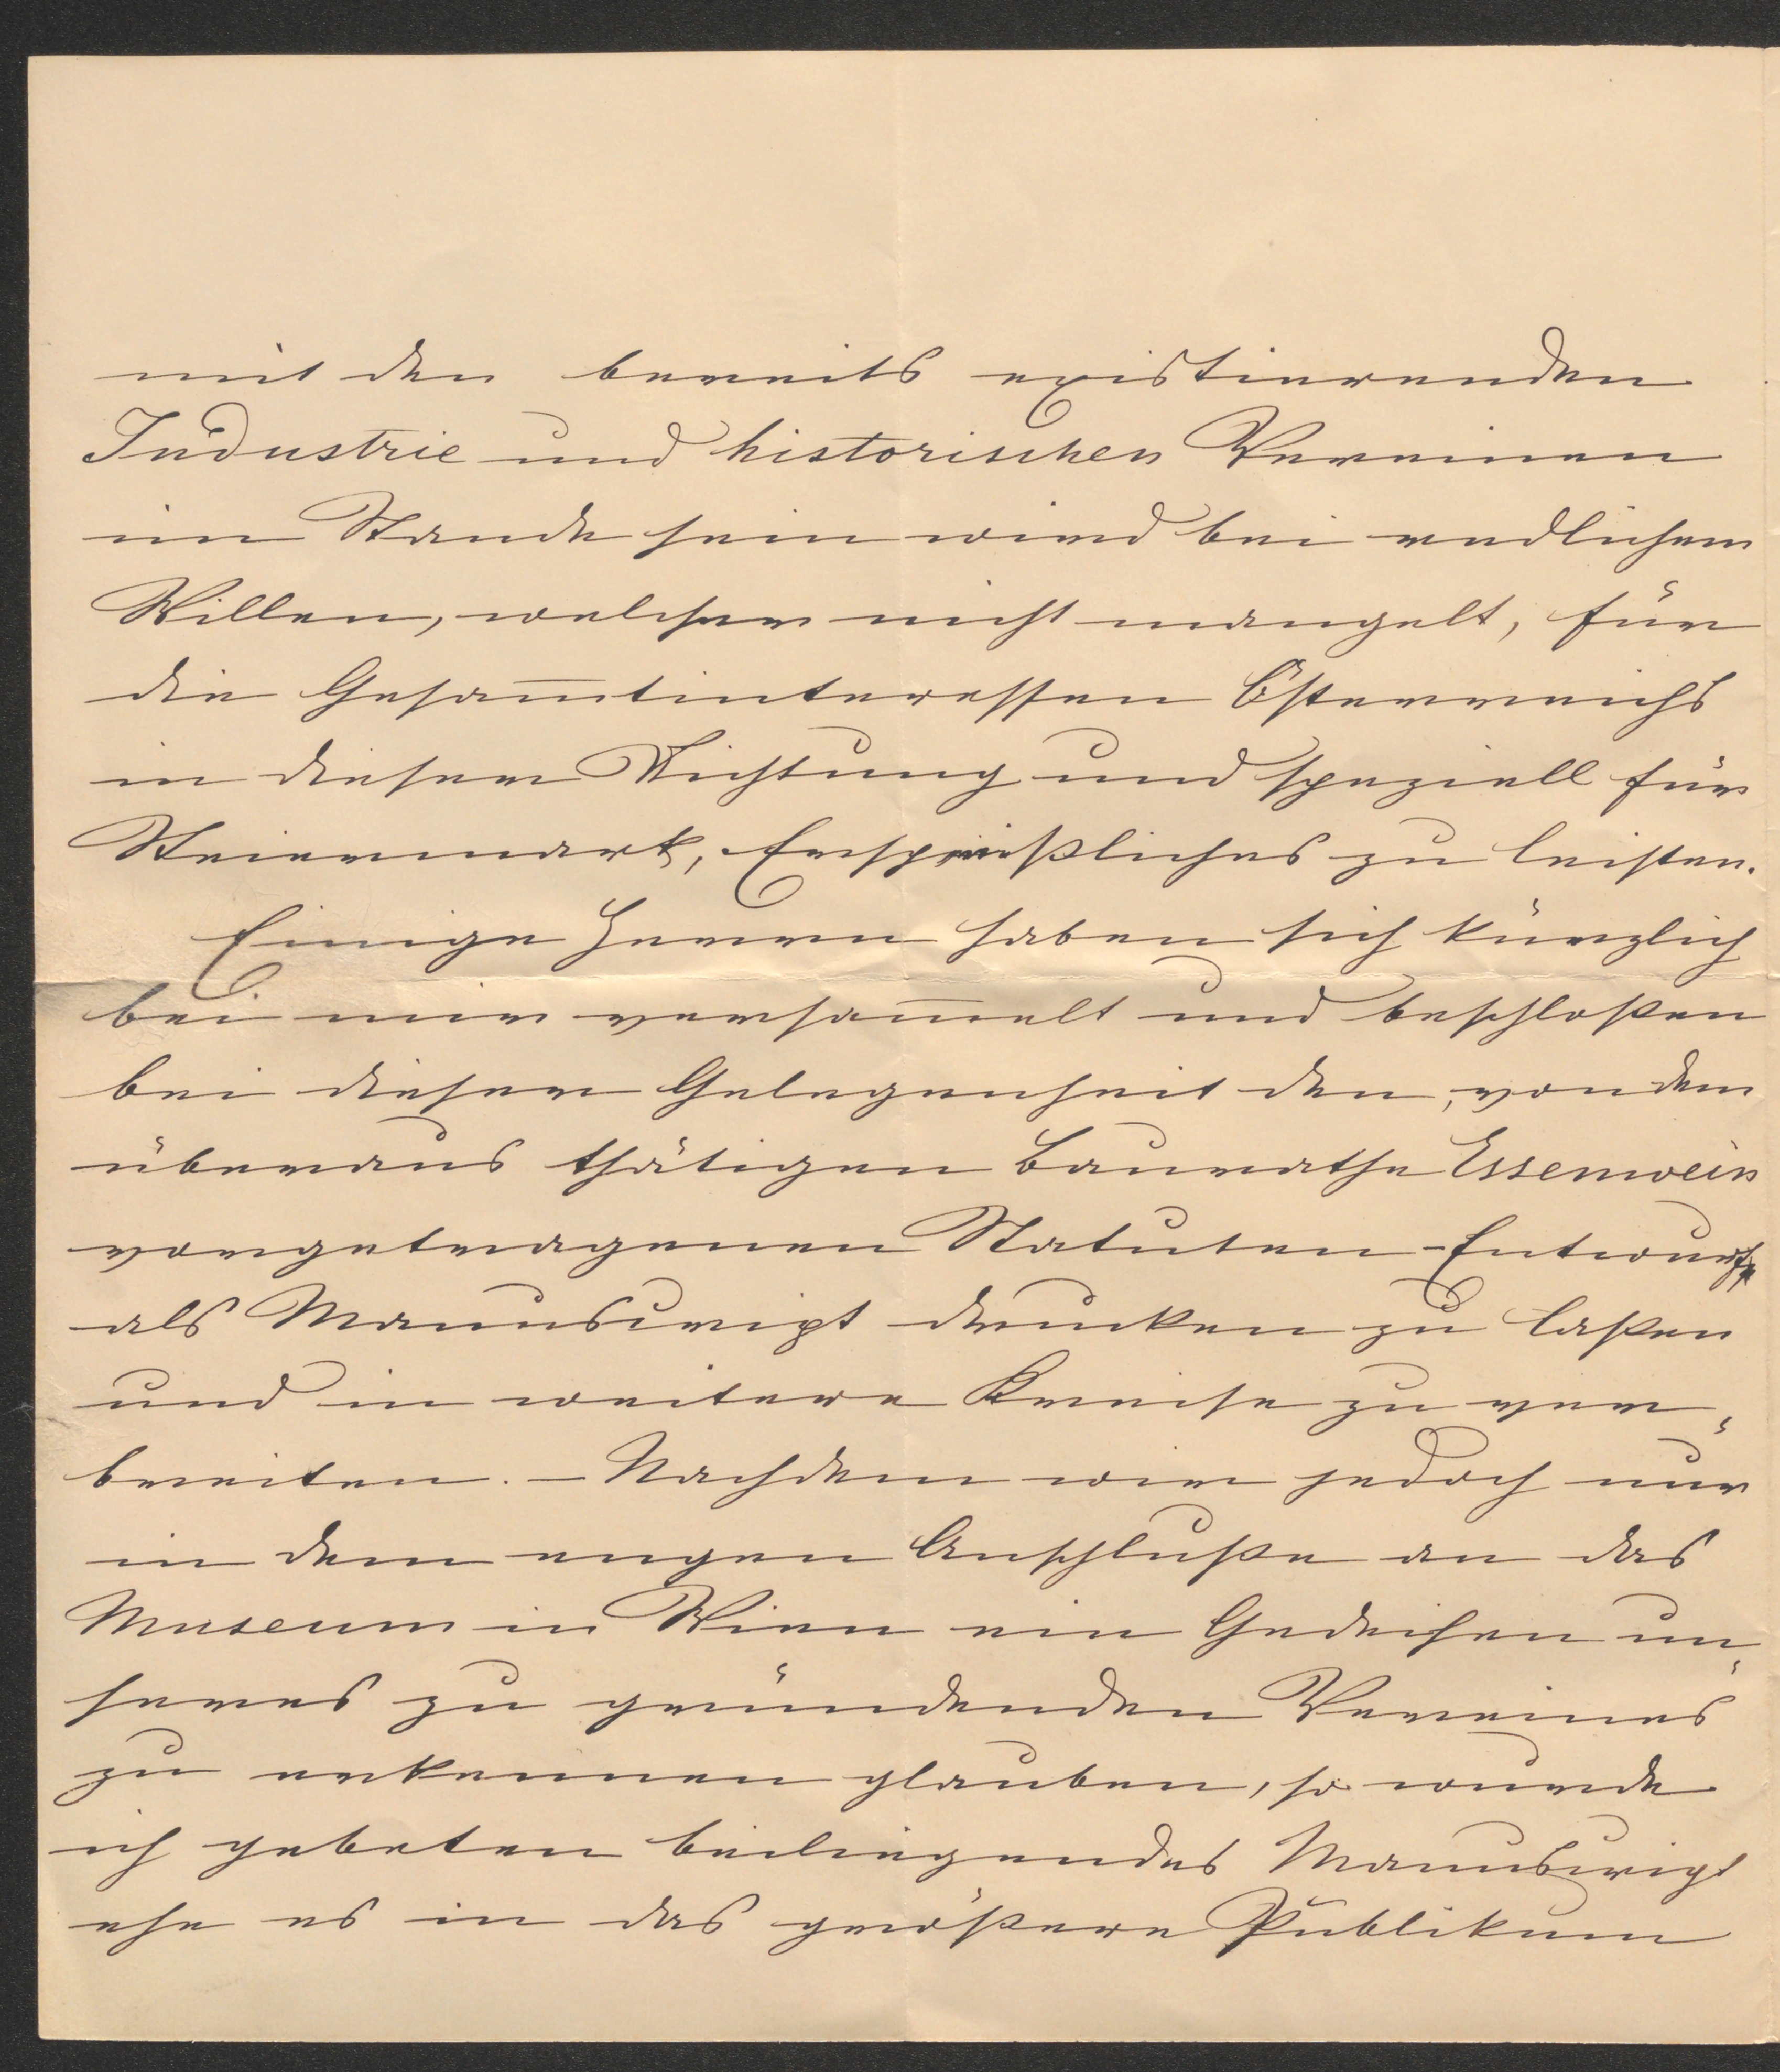 mit den bereits existierenden
Industrie und historischen Vereinen
im Stande sein wird bei redlichem
Willen, welcher nicht mangelt, für
die Gesam̅tinteressen Österreichs
in dieser Richtung und speziell für
Steiermark, Ersprießliches zu leisten.
Einige Herren haben sich kürzlich
bei mir versam̅elt und beschloßen
bei dieser Gelegenheit den, von dem
überaus thätigen Baurathe Essenwein
vorgetragenen Statuten-Entwurf
als Manuscript drucken zu laßen
und in weitere Kreise zu ver„
breiten. – Nachdem wir jedoch nur
in dem engen Anschluße an das
Museum in Wien ein Gedeihen un„
seres zu gründenden Vereines
zu erkennen glauben, so wurde
ich gebeten beiliegendes Manuscript
ehe es in das größere Publikum